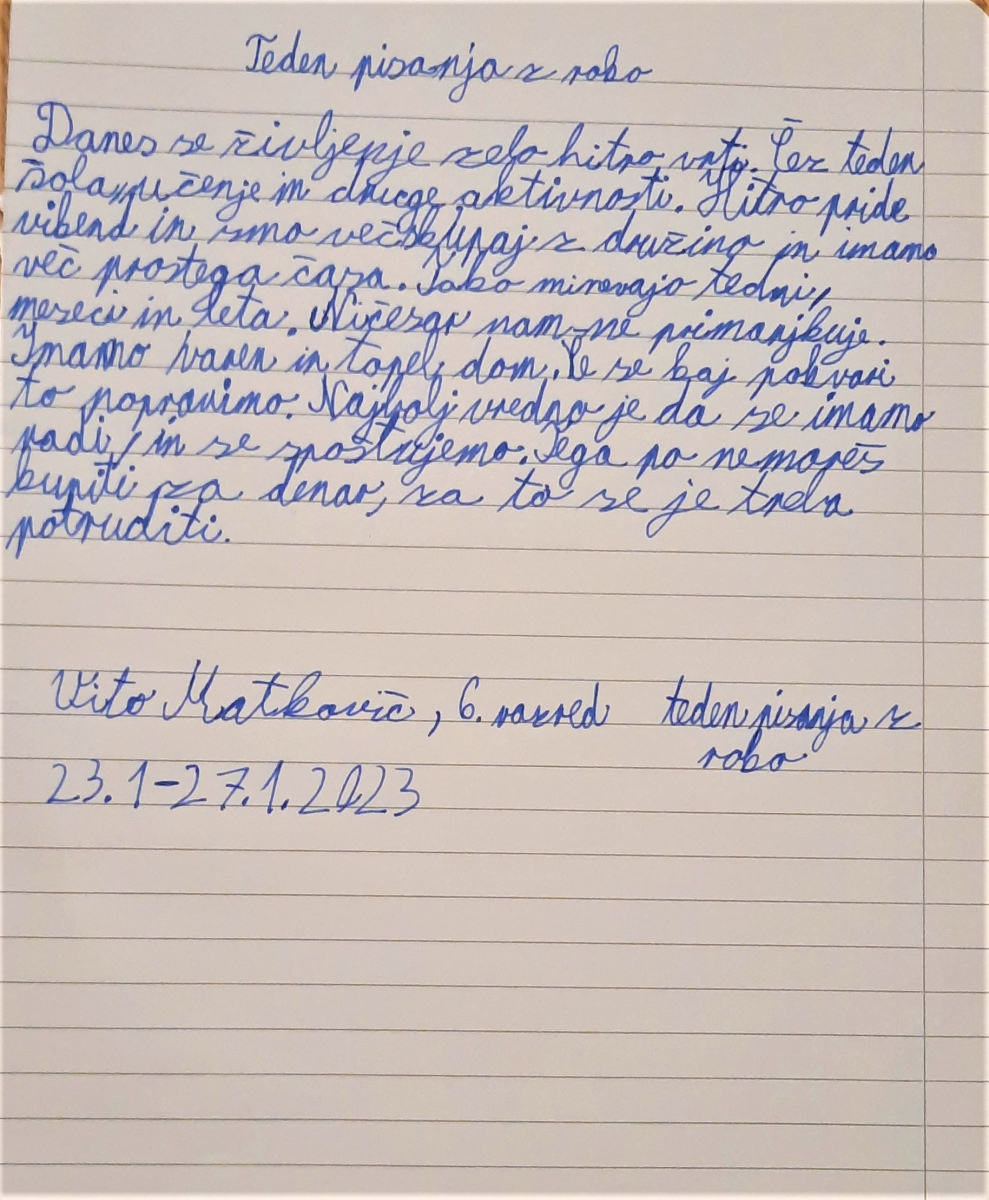 Teden pisanja z roko
Danes se življenje zelo hitro vrti. Čez teden
šola, učenje in druge aktivnosti. Hitro pride
vikend in smo več skupaj z družino in imamo
več prostega časa. Tako minevajo tedni,
meseci in leta. Ničesar nam ne primanjkuje.
Imamo varen in topel dom. Če se kaj pokvari
to popravimo. Najbolj vredno je da se imamo
radi, in se spoštujemo. Tega pa nemoreš
kupiti za denar, za to se je treba
potruditi.
Vito Matkovič, 6. razred teden pisanja z
roko
23.1-27.1.2023